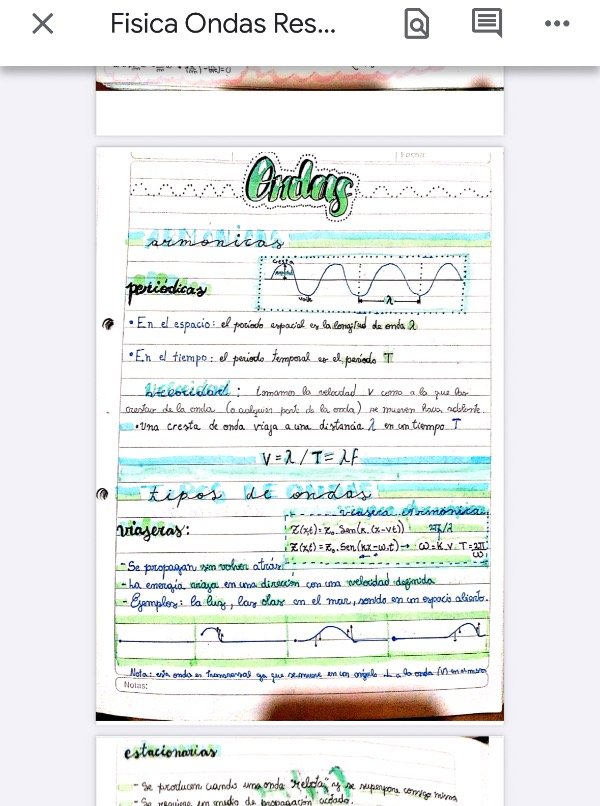 Fisica Ondas Res...
Fecha:
Ondas
armónicas
cresta
valle
λ
periódicas
• En el espacio: el periodo espacial es la longitud de onda λ
• En el tiempo: el periodo temporal es el periodo T
velocidad: tomamos la velocidad v como a la que las
crestas de la onda (o cualquier parte de la onda) se mueven hacia adelante.
• Una cresta de onda viaja a una distancia λ en un tiempo T
V = λ / T = λf
tipos de ondas
viajera armónica
viajeras:
Z(x,t) = Z₀. Sen(k.(x-vt)) 2π/λ
Z(x,t) = Z₀. Sen(kx-ω.t) → ω=k.v T=2π/ω
- Se propagan sin volver atrás
- La energía viaja en una dirección con una velocidad definida
- Ejemplos: la luz, las olas en el mar, sonido en un espacio abierto.
Nota: esta onda es transversal ya que se mueve en un ángulo ⊥ a la onda
Notas:
estacionarias
- Se producen cuando una onda "rebota" y se superpone consigo misma
- Se requiere un medio de propagación acotado.